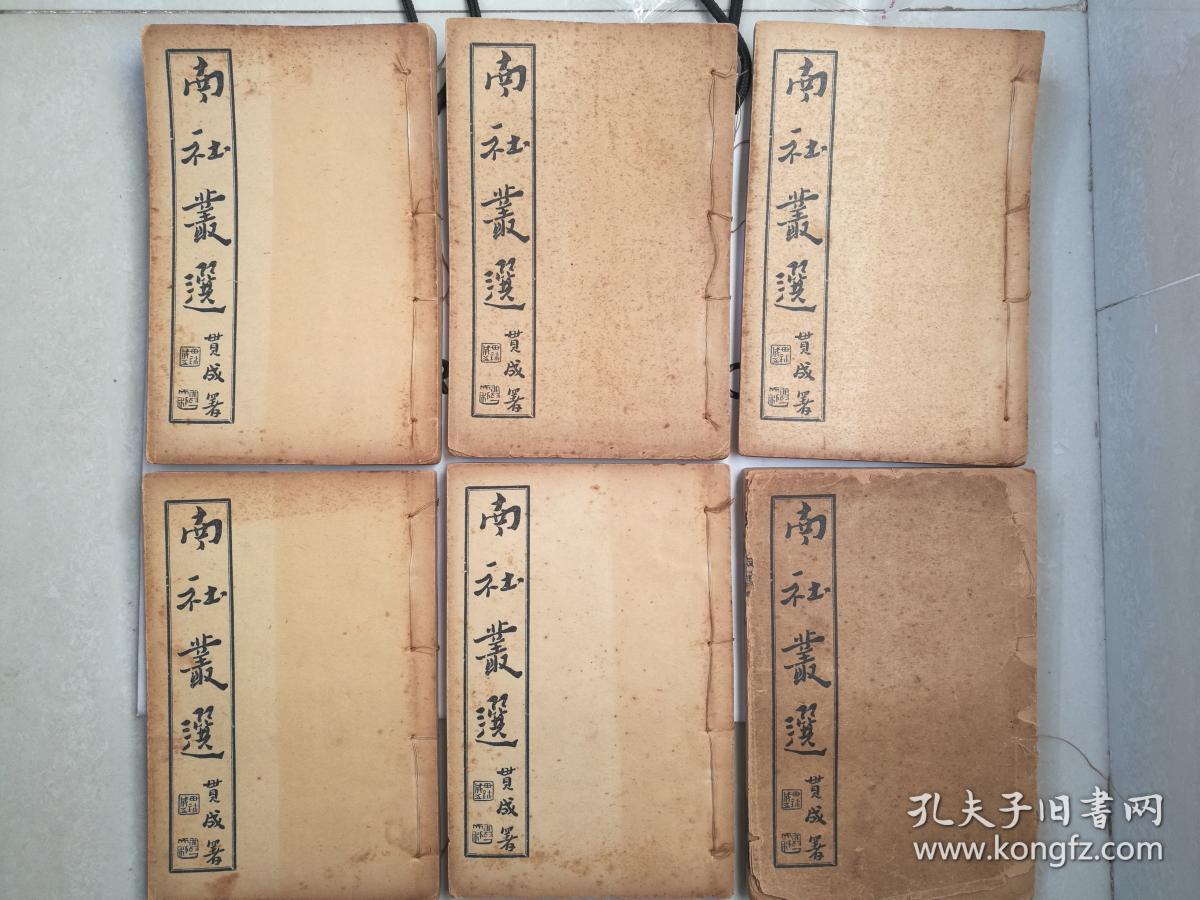 南社叢選
貫成署
南社叢選
貫成署
南社叢選
貫成署
南社叢選
貫成署
南社叢選
貫成署
南社叢選
貫成署
孔夫子旧书网
www.kongfz.com